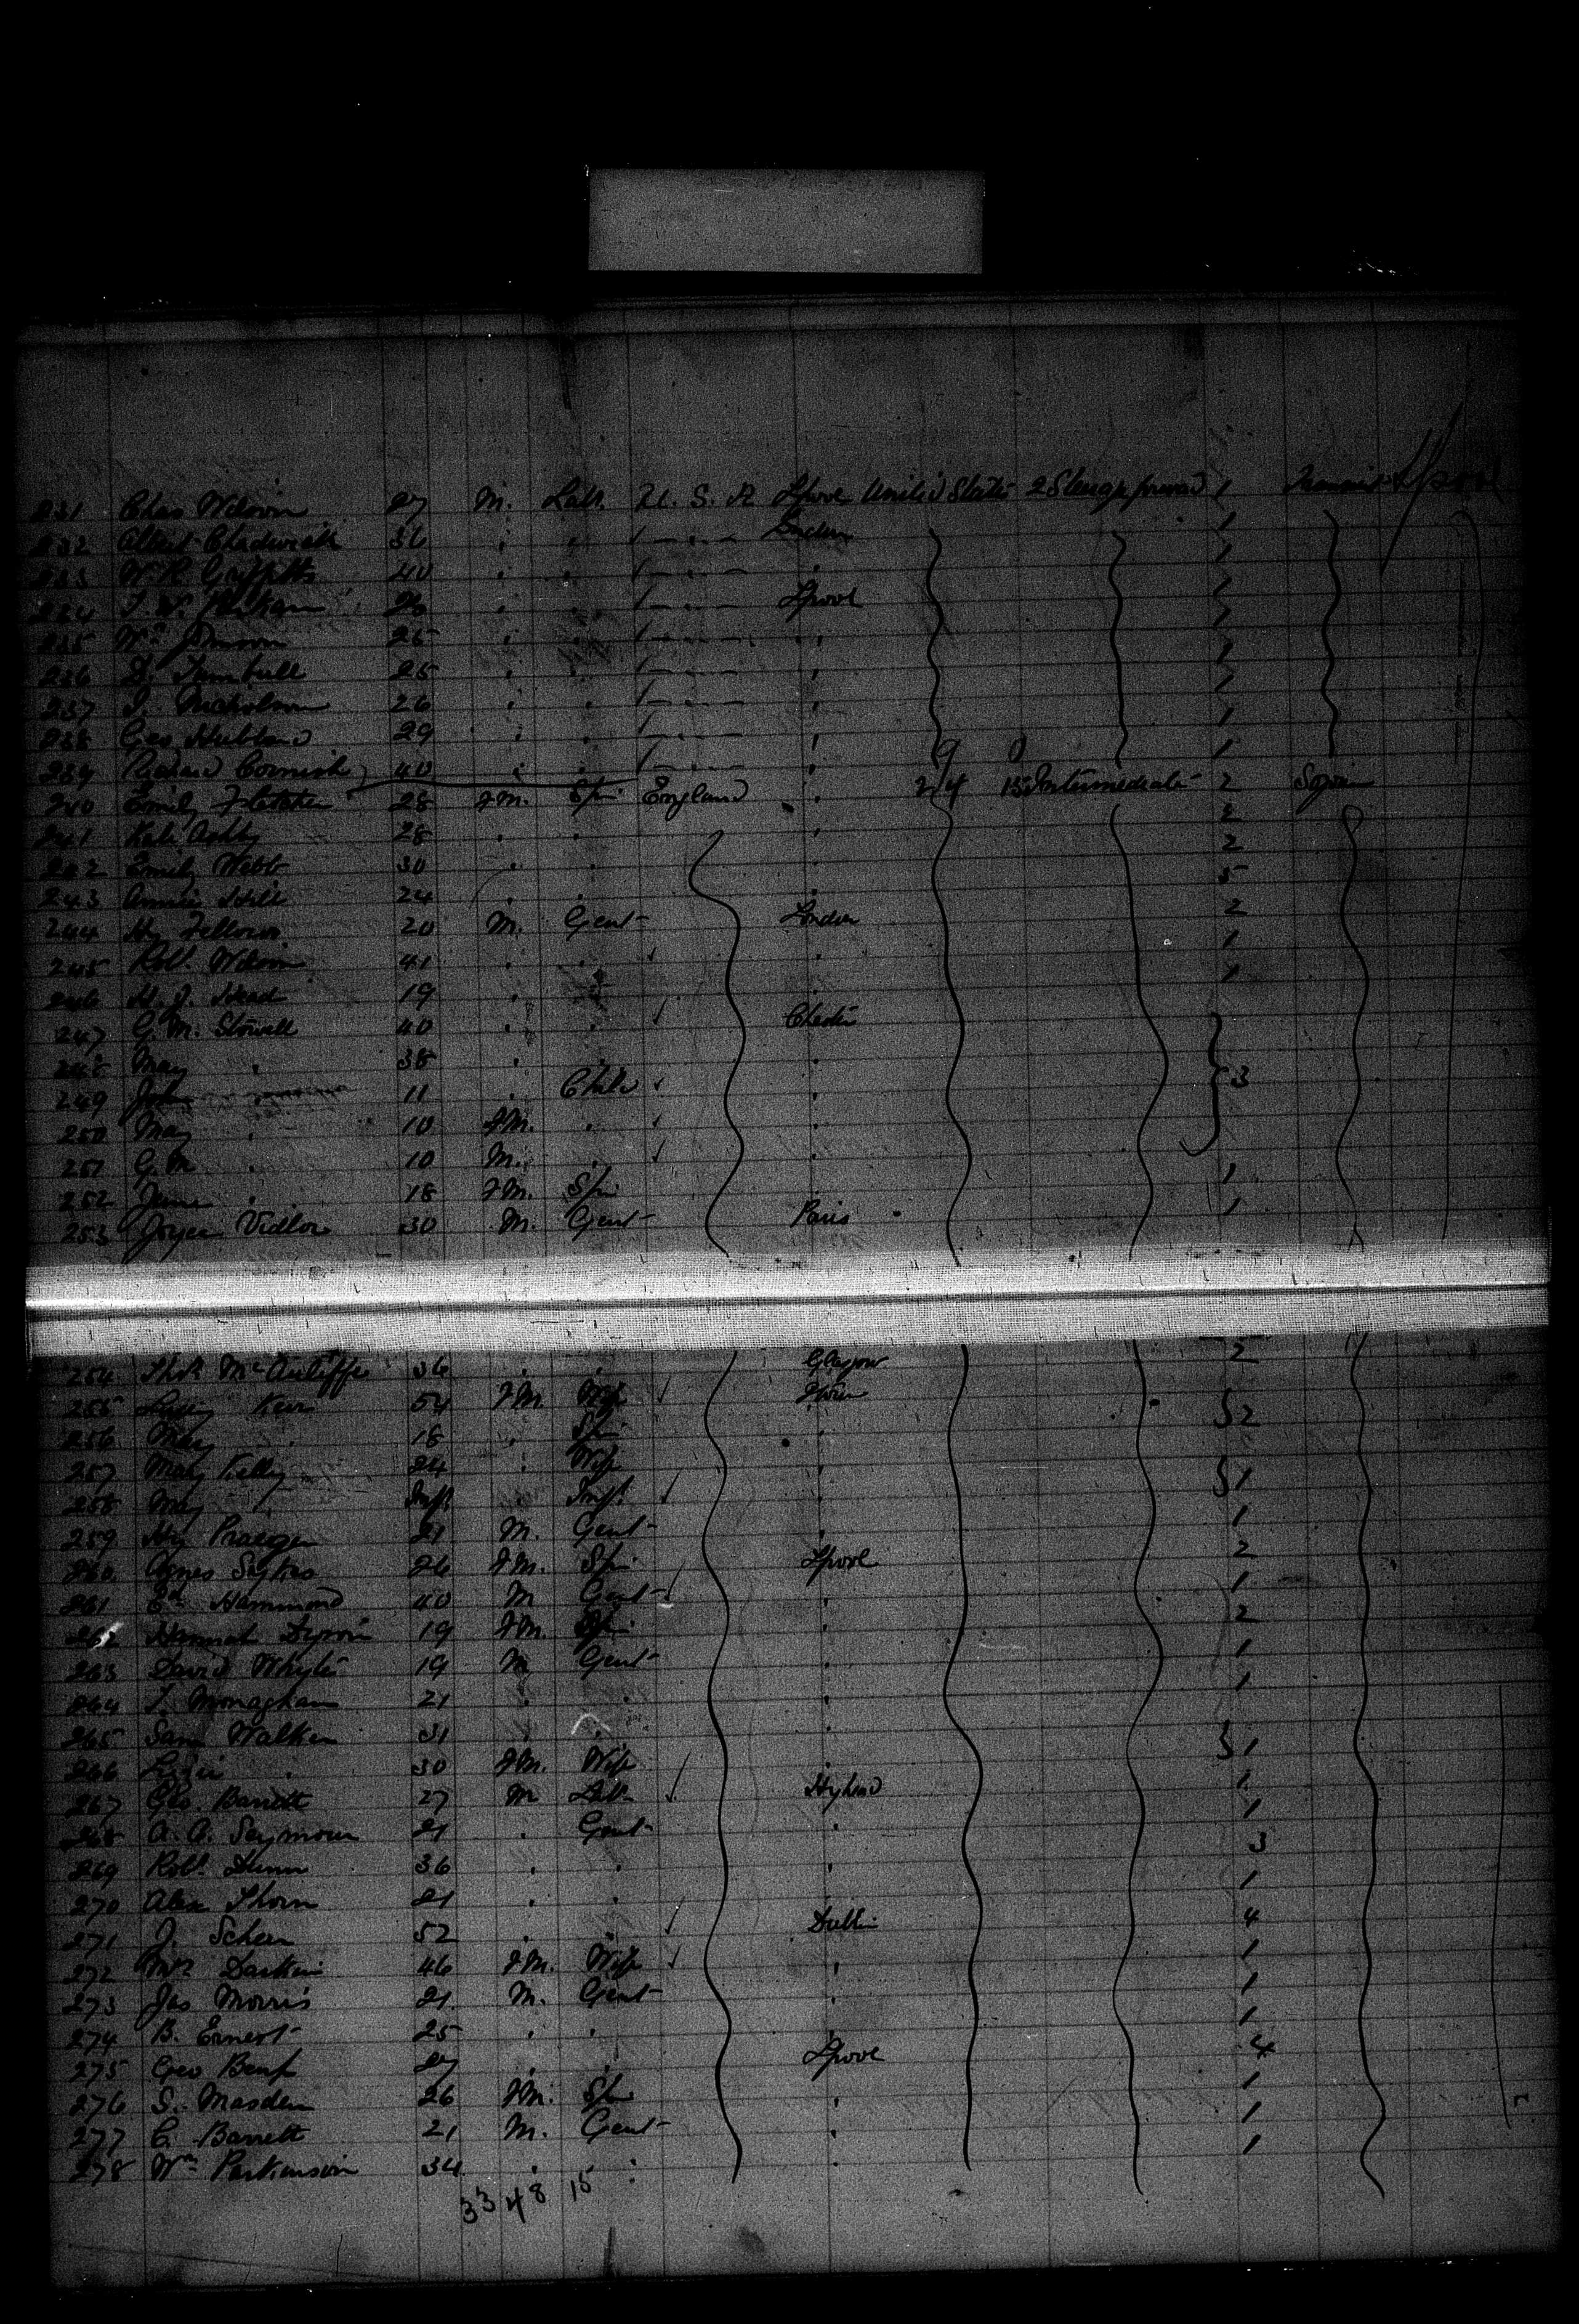 231 Chas Wilson 27 M. Labr. U. S. A Lpool United States 2 Steerage forward 1
232 Albert Chadwick 36 " " London 1
233 W. R. Griffitts 40 " " " 1
234 26 " " Lpool 1
235 Wm Johnson 25 " " " 1
236 D. Turnbull 25 " " " 1
237 J. Nicholson 26 " " " 1
238 Geo Hubband 29 " " " 1
239 Richard Cornish 40 " " " 1
240 Emily Fletcher 28 F.M. Spr England " 24 15 Intermediate 2
241 Kate Ashby 28 " " " 2
242 Emily Webb 30 " " " 2
243 Annie Hill 24 " " " 5
244 Hy Fellows 20 M. Gent London 2
245 Robt. Wilson 41 " " " 1
246 H. J. Head 19 " " " 1
247 G. M. Stowell 40 " " Chester
248 May " 38 " " "
249 John " 11 " Child " 3
250 May " 10 F.M. " "
251 G. M. " 10 M. " "
252 Jane " 18 F.M. Spr 1
253 Joyce Vidlow 30 M. Gent Paris 1
254 McAuliffe 36 " " Glasgow 2
255 Kerr 54 F.M. Wife
256 May " 18 " Spr " 2
257 Mary Kelly 24 " Wife "
258 May " Inft " Inft. " 1
259 Hy Praeger 21 M. Gent " 1
260 Agnes Sykes 26 F.M. Spr Lpool 2
261 Ed. Hammond 40 M Gent " 1
262 Hannah Dyson 19 F.M. Spr " 2
263 David Whyte 19 M Gent " 1
264 T. Monaghan 21 " " " 1
265 Saml Walker 31 " "
266 Lizzie " 30 F.M. Wife " 1
267 Geo. Barrett 27 M Lab. Hyhead 1
268 A. A. Seymour 21 " Gent " 1
269 Robt. Dunn 36 " " " 3
270 Alex Thorn 21 " " 1
271 J. Scheen 52 " " Dublin 4
272 Mrs Darkin 46 F.M. Wife " 1
273 Jas Morris 21 M. Gent " 1
274 B. Ernest 25 " " " 1
275 Geo Benf 27 " " Lpool 4
276 S. Masden 26 F.M. Spr " 1
277 C. Barrett 21 M. Gent " 1
278 Wm Parkinson 34 " " " 1
33 48 15